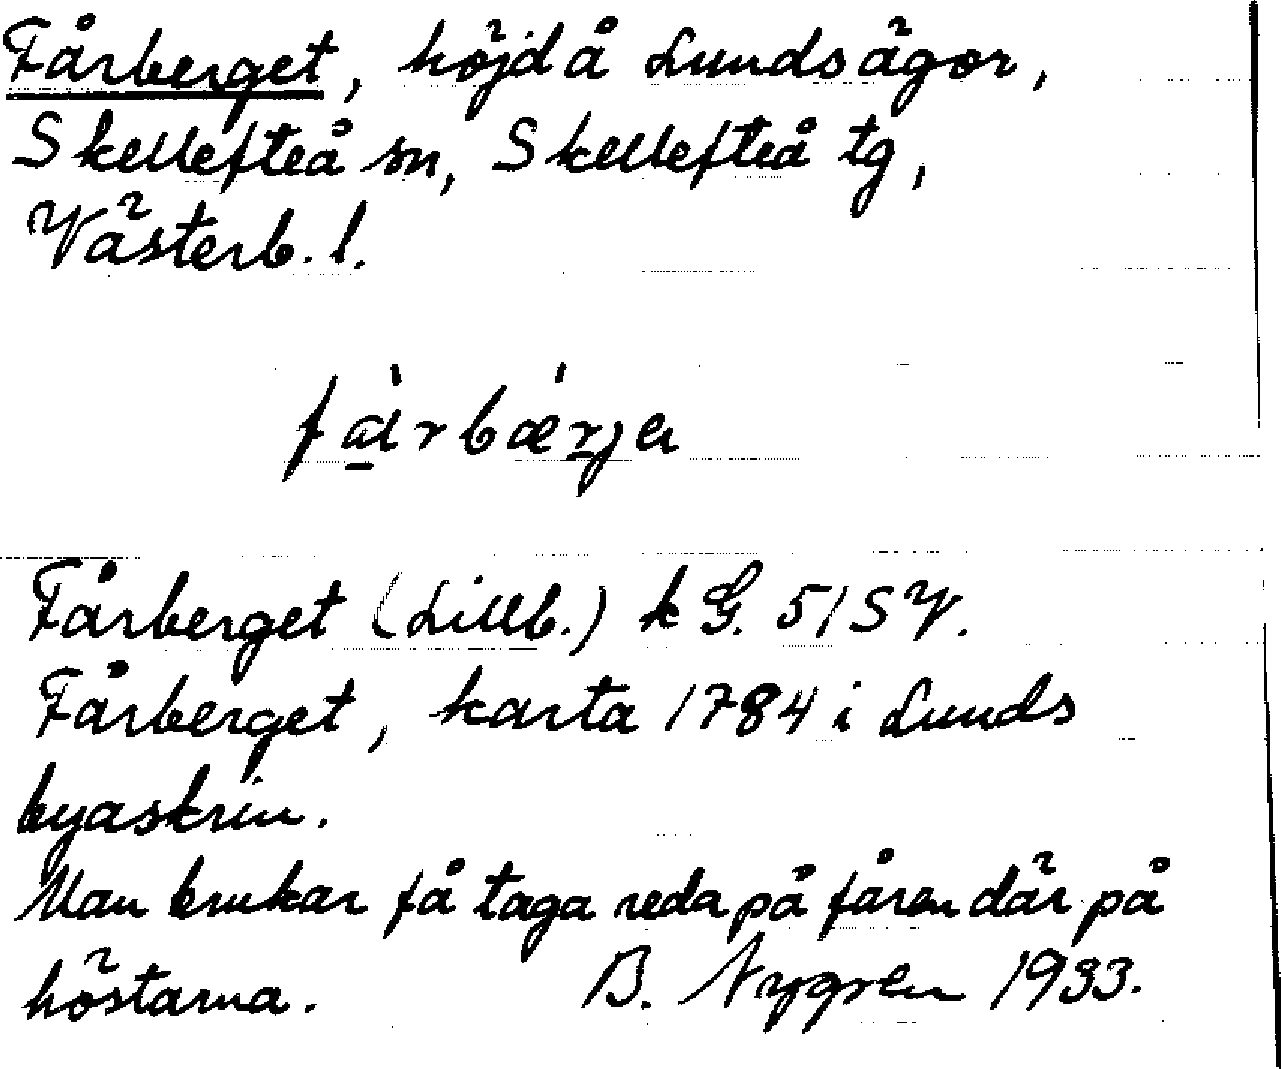 Fårberget, höjd å Lunds ägor,
Skellefteå sn, Skellefteå tg,
Västerb. l.
Fårberget (Lillb.) k G. 51 SV.
Fårberget, karta 1784 i Lunds
byaskrin.
Man brukar få taga reda på fåren där på
höstarna. B. Nygren 1933.